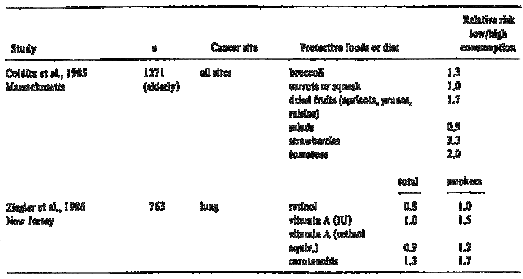 Relative risk
low/high
Study n Cancer site Protective foods or diet consumption
Colditz et al., 1985 1271 all sites broccoli 1.3
Massachusetts (elderly) carrots or squash 1.0
dried fruits (apricots, prunes, 1.7
raisins)
salads 0.9
strawberries
tomatoes 2.0
total smokers
Ziegler et al., 1986 763 lung retinol 0.8 1.0
New Jersey vitamin A (IU) 1.0 1.5
vitamin A (retinol
equiv.) 0.9 1.3
carotenoids 1.3 1.7